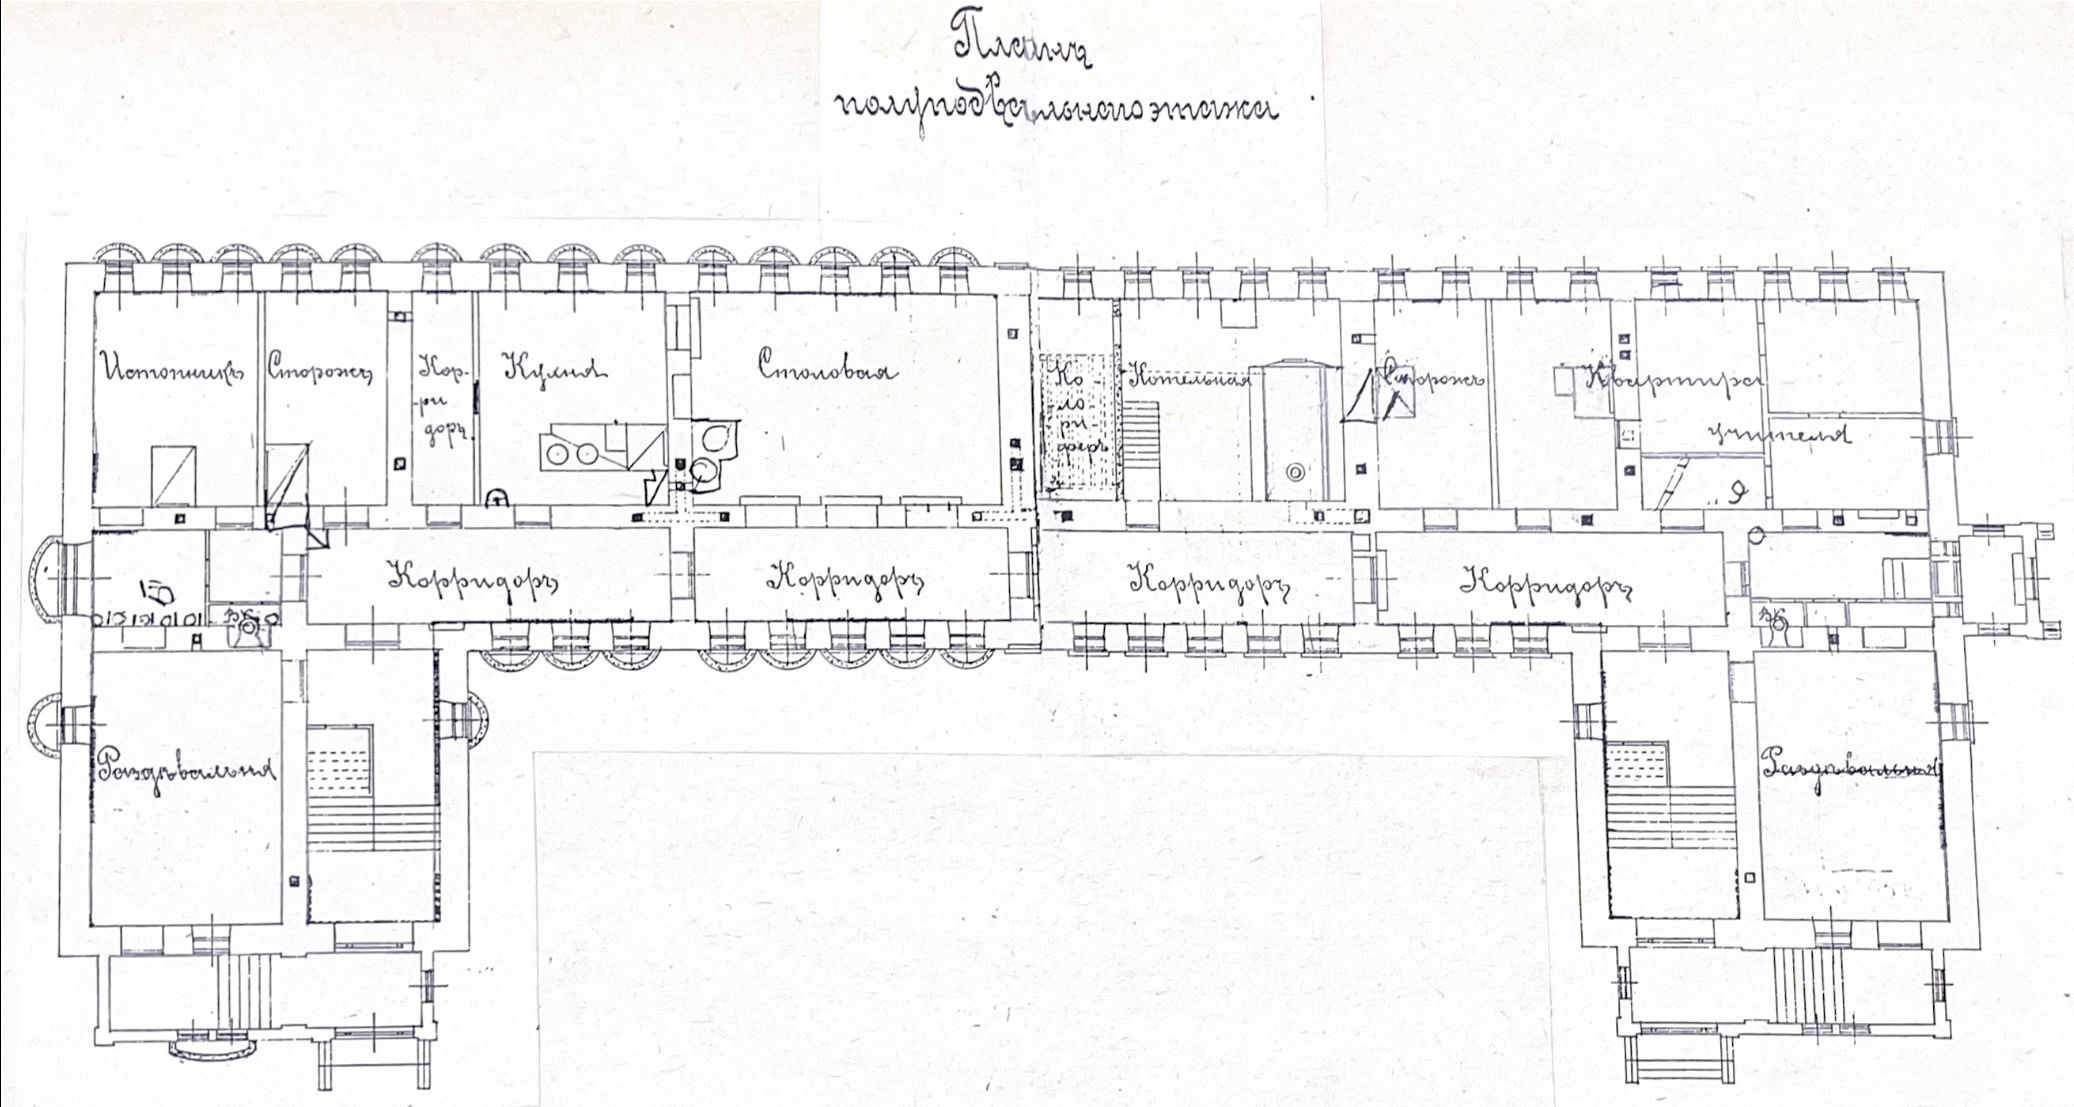 Планъ
полуподвальнаго этажа
Истопникъ
Сторожъ
Кор-
-ри
доръ
Кухня
Столовая
Ко-
ло-
ри-
феръ
Котельная
Сторожъ
Квартира
учителя
Корридоръ
Корридоръ
Корридоръ
Корридоръ
Раздѣвальня
Раздѣвальня